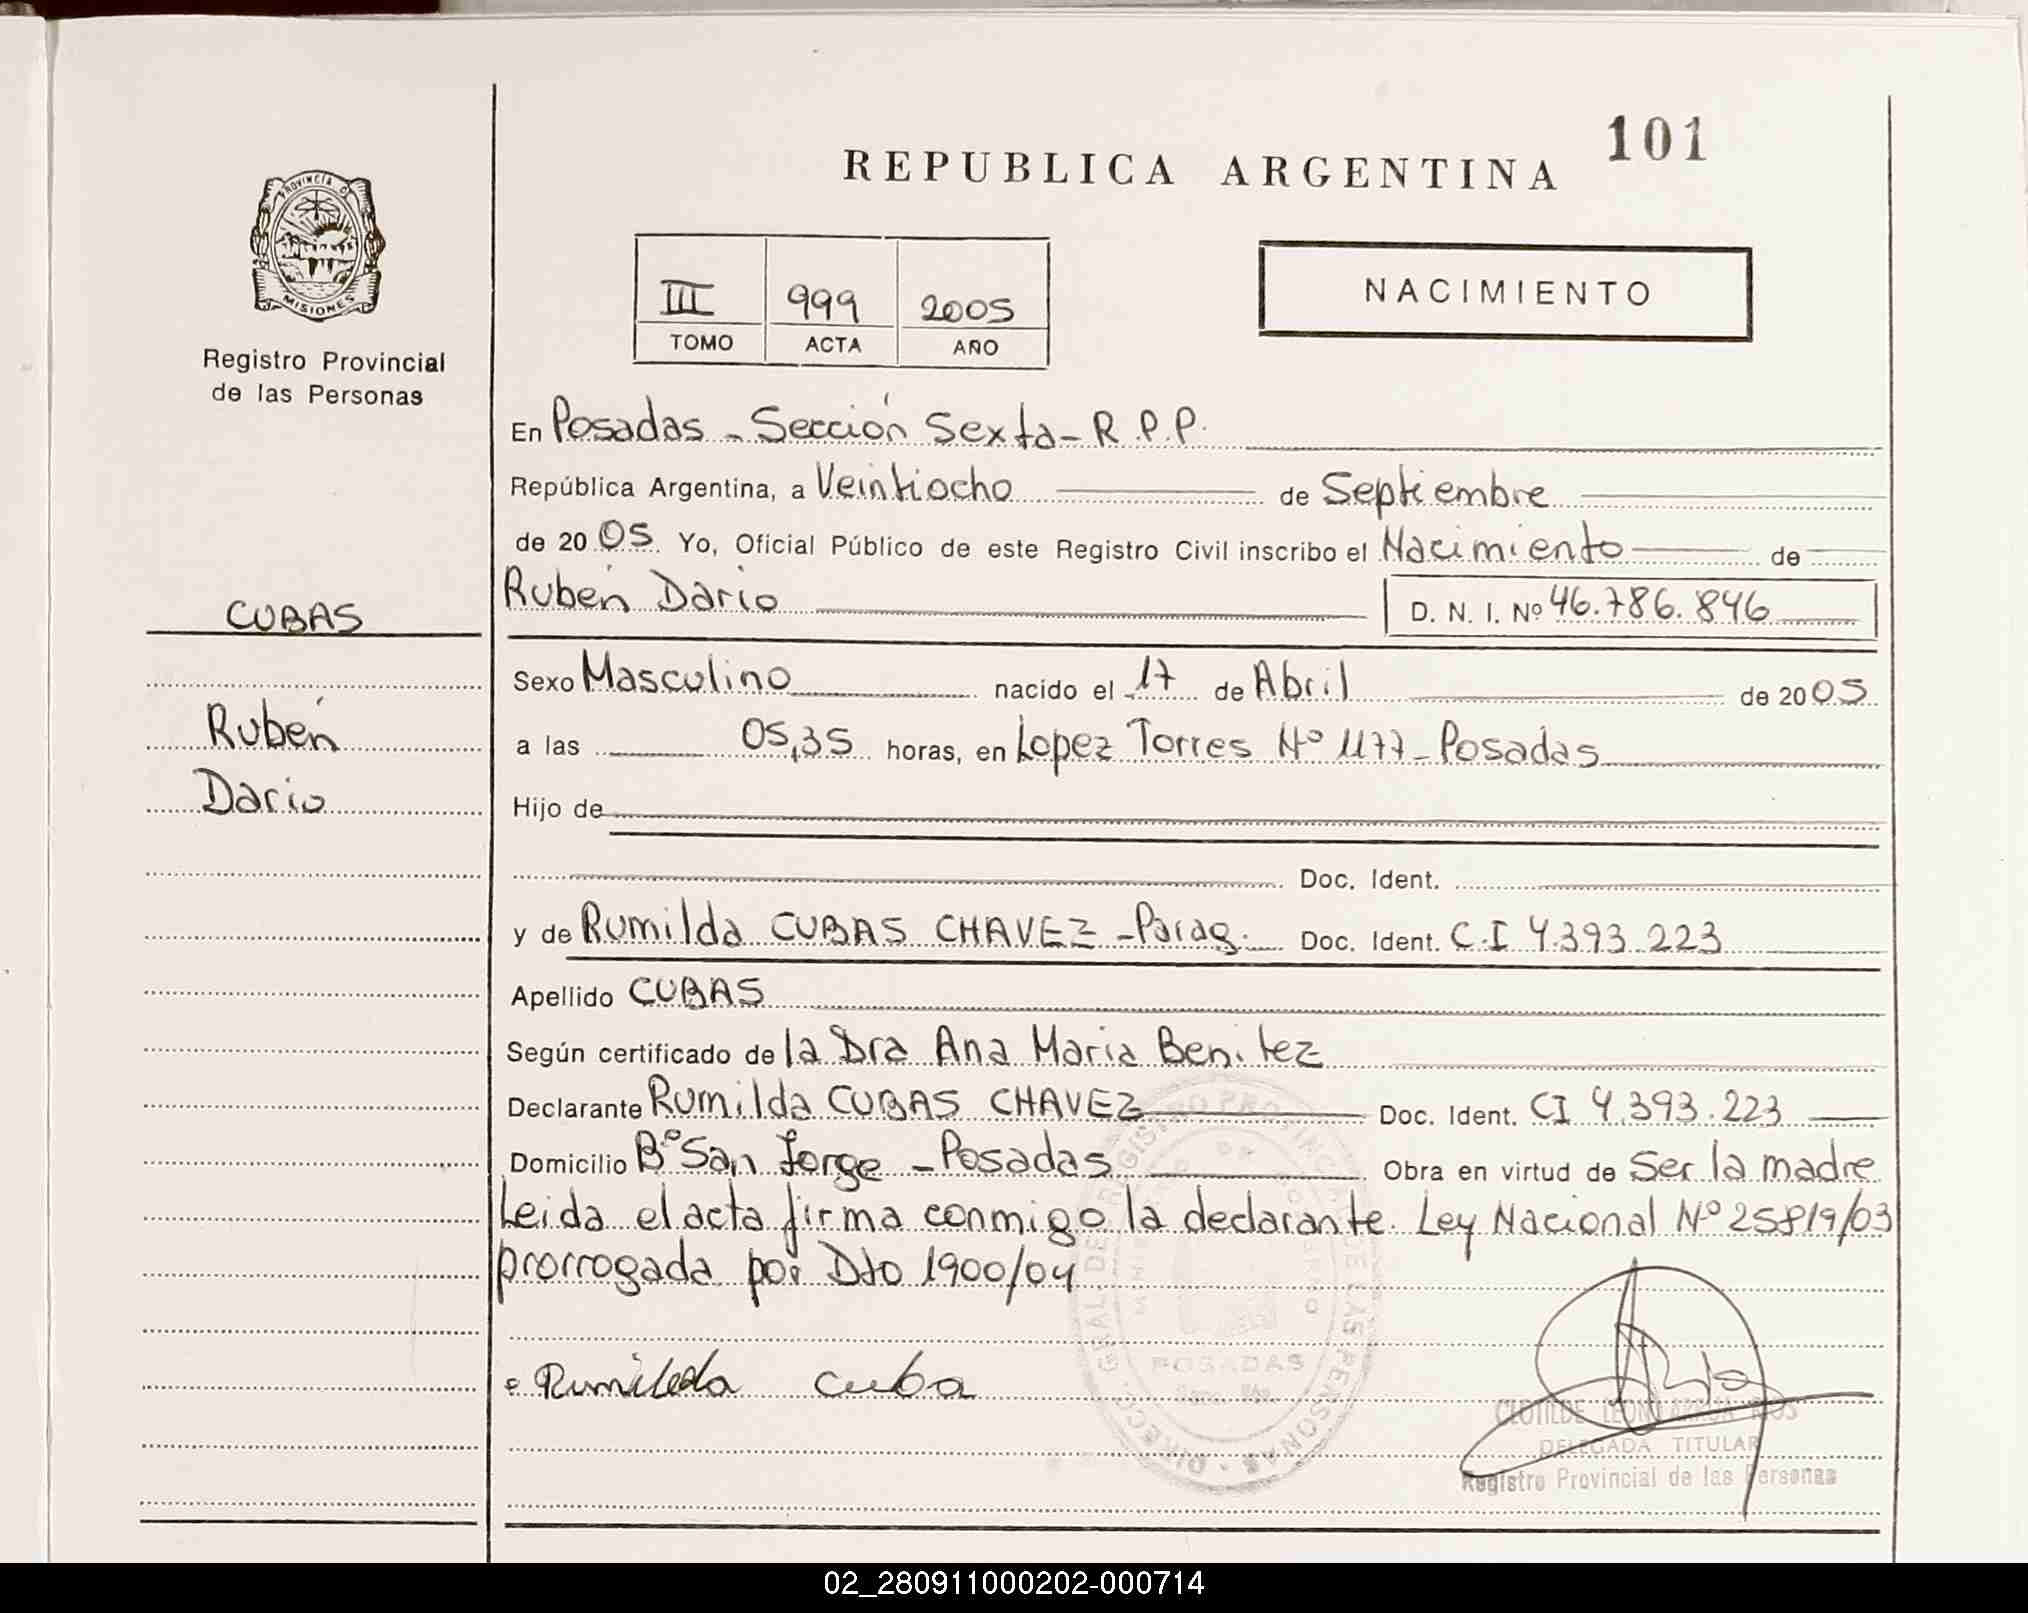 REPUBLICA ARGENTINA 101
PROVINCIA D
MISIONES
Registro Provincial
de las Personas
III 999 2005
TOMO ACTA AÑO
NACIMIENTO
En Posadas - Sección Sexta - R.P.P.
República Argentina, a Veintiocho de Septiembre
de 2005. Yo, Oficial Público de este Registro Civil inscribo el Nacimiento de
Rubén Dario D. N. I. Nº 46.786.846
CUBAS
Rubén
Dario
Sexo Masculino nacido el 17 de Abril de 2005
a las 05,35 horas, en Lopez Torres Nº 1177 - Posadas
Hijo de
Doc. Ident.
y de Rumilda CUBAS CHAVEZ - Parag. Doc. Ident. C.I 4.393.223
Apellido CUBAS
Según certificado de la Dra Ana Maria Benitez
Declarante Rumilda CUBAS CHAVEZ Doc. Ident. CI 4.393.223
Domicilio Bº San Jorge - Posadas Obra en virtud de ser la madre
Leida el acta firma conmigo la declarante. Ley Nacional Nº 25819/03
prorrogada por Dto 1900/04
Rumileda cuba
DIRECC. GRAL. DE REGISTRO PROVINC. DE LAS PERSONAS
POSADAS
CLOTILDE RIOS
DELEGADA TITULAR
Registro Provincial de las Personas
02_280911000202-000714